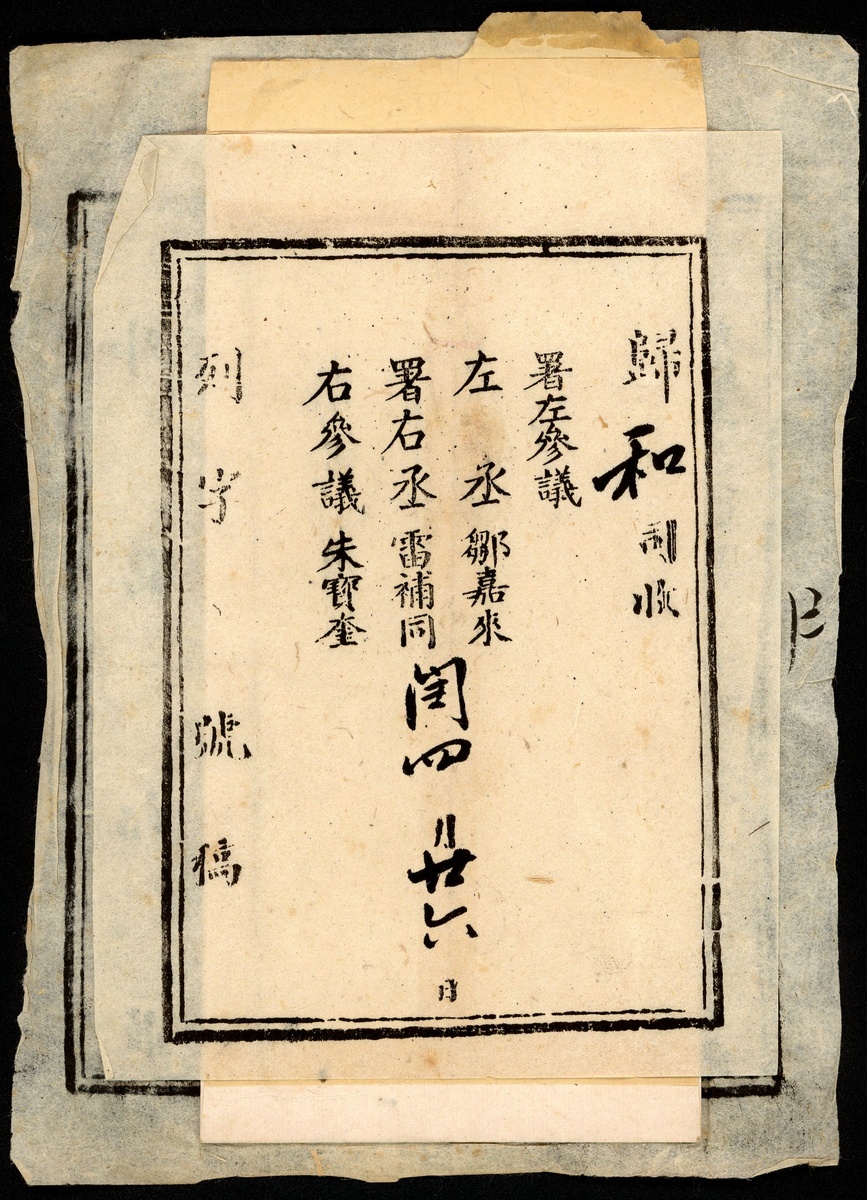 歸和司收
署左參議
左丞鄒嘉來
署右丞雷補同
右參議朱寶奎
閏四月廿六日
列字號稿